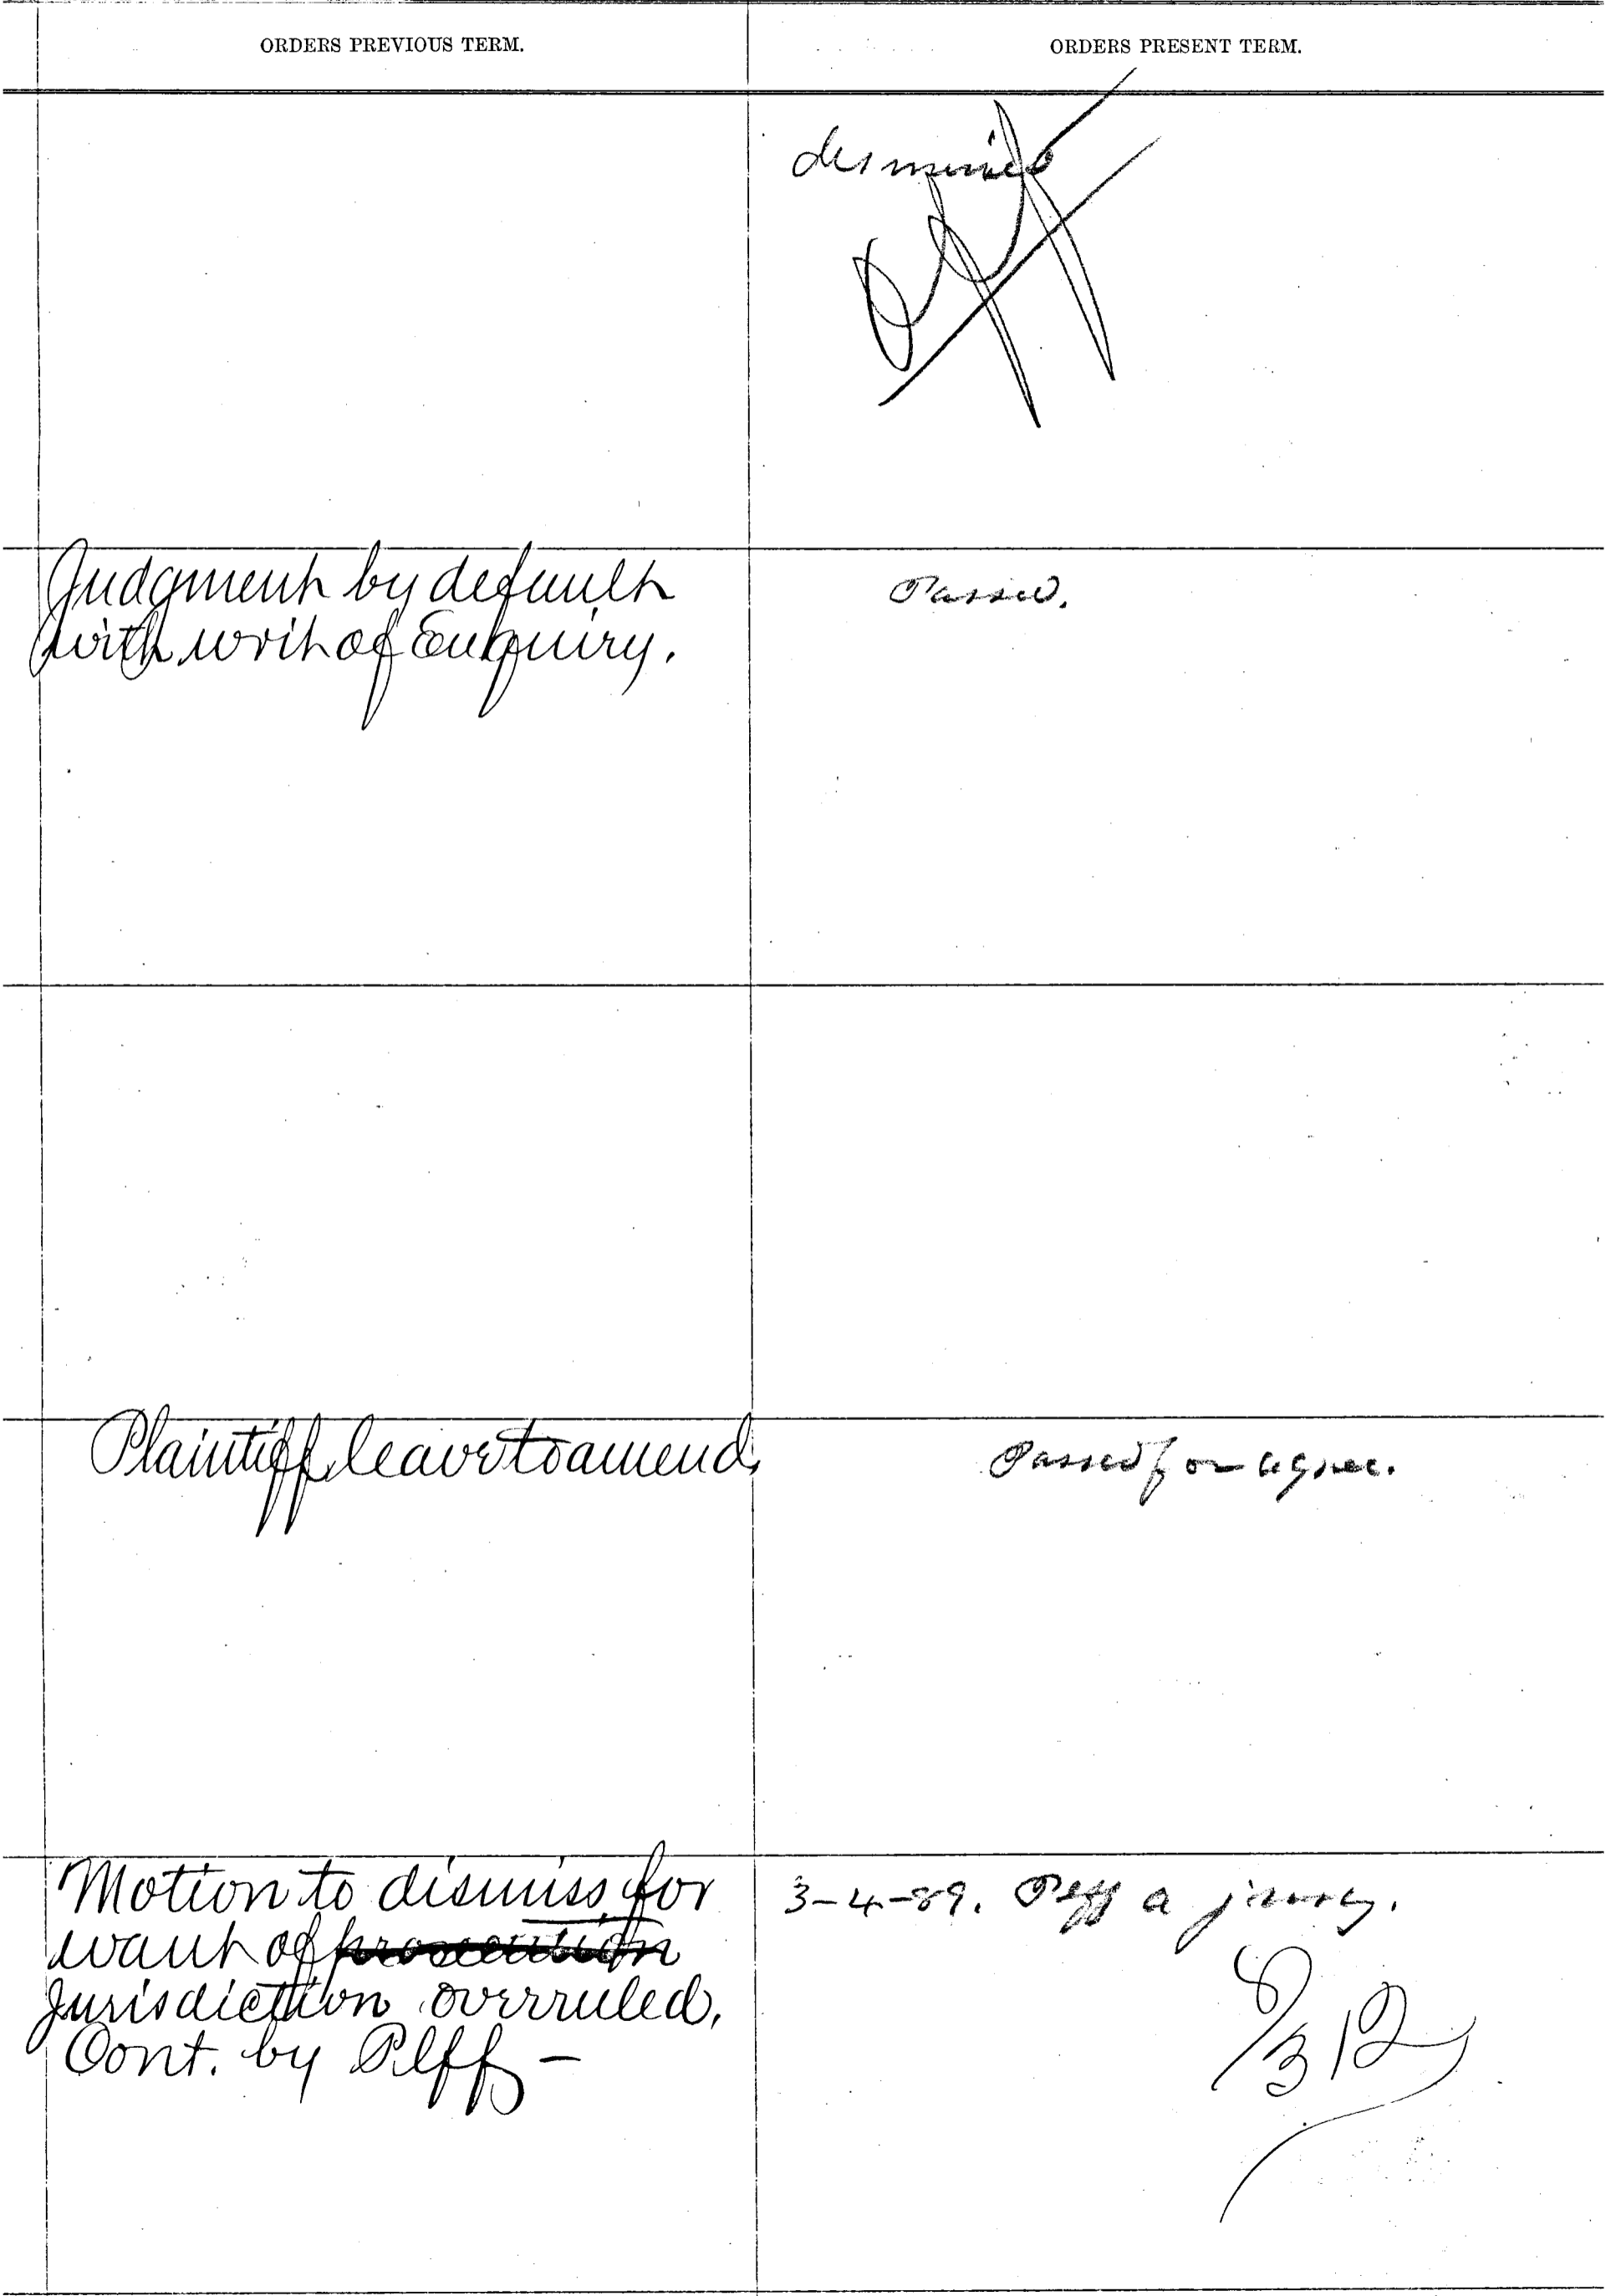 ORDERS PREVIOUS TERM.
ORDERS PRESENT TERM.
dismissed
Judgment by default
with writ of Enquiry.
Passed.
Plaintiff leave to amend.
Passed for agree.
Motion to dismiss for
want of prosecution
Jurisdiction overruled.
Cont. by Plff –
3-4-89. Plff a jury.